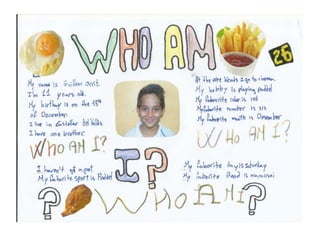 WHO AM
I?
26
My name is Guillem
I'm 11 years old.
My birthay is on the 15th
of December.
I live in
I have one brother.
WHO AM I?
I haven't got a pet
My faborite sport is Paddel
At the wee kends I go to cinema
My hobby is playing paddel
My faborite color is red
My faborite number is six
My faborite month is December
WHO AM I?
My faborite day is Saturday
My faborite food is
?
WHO AM I
?